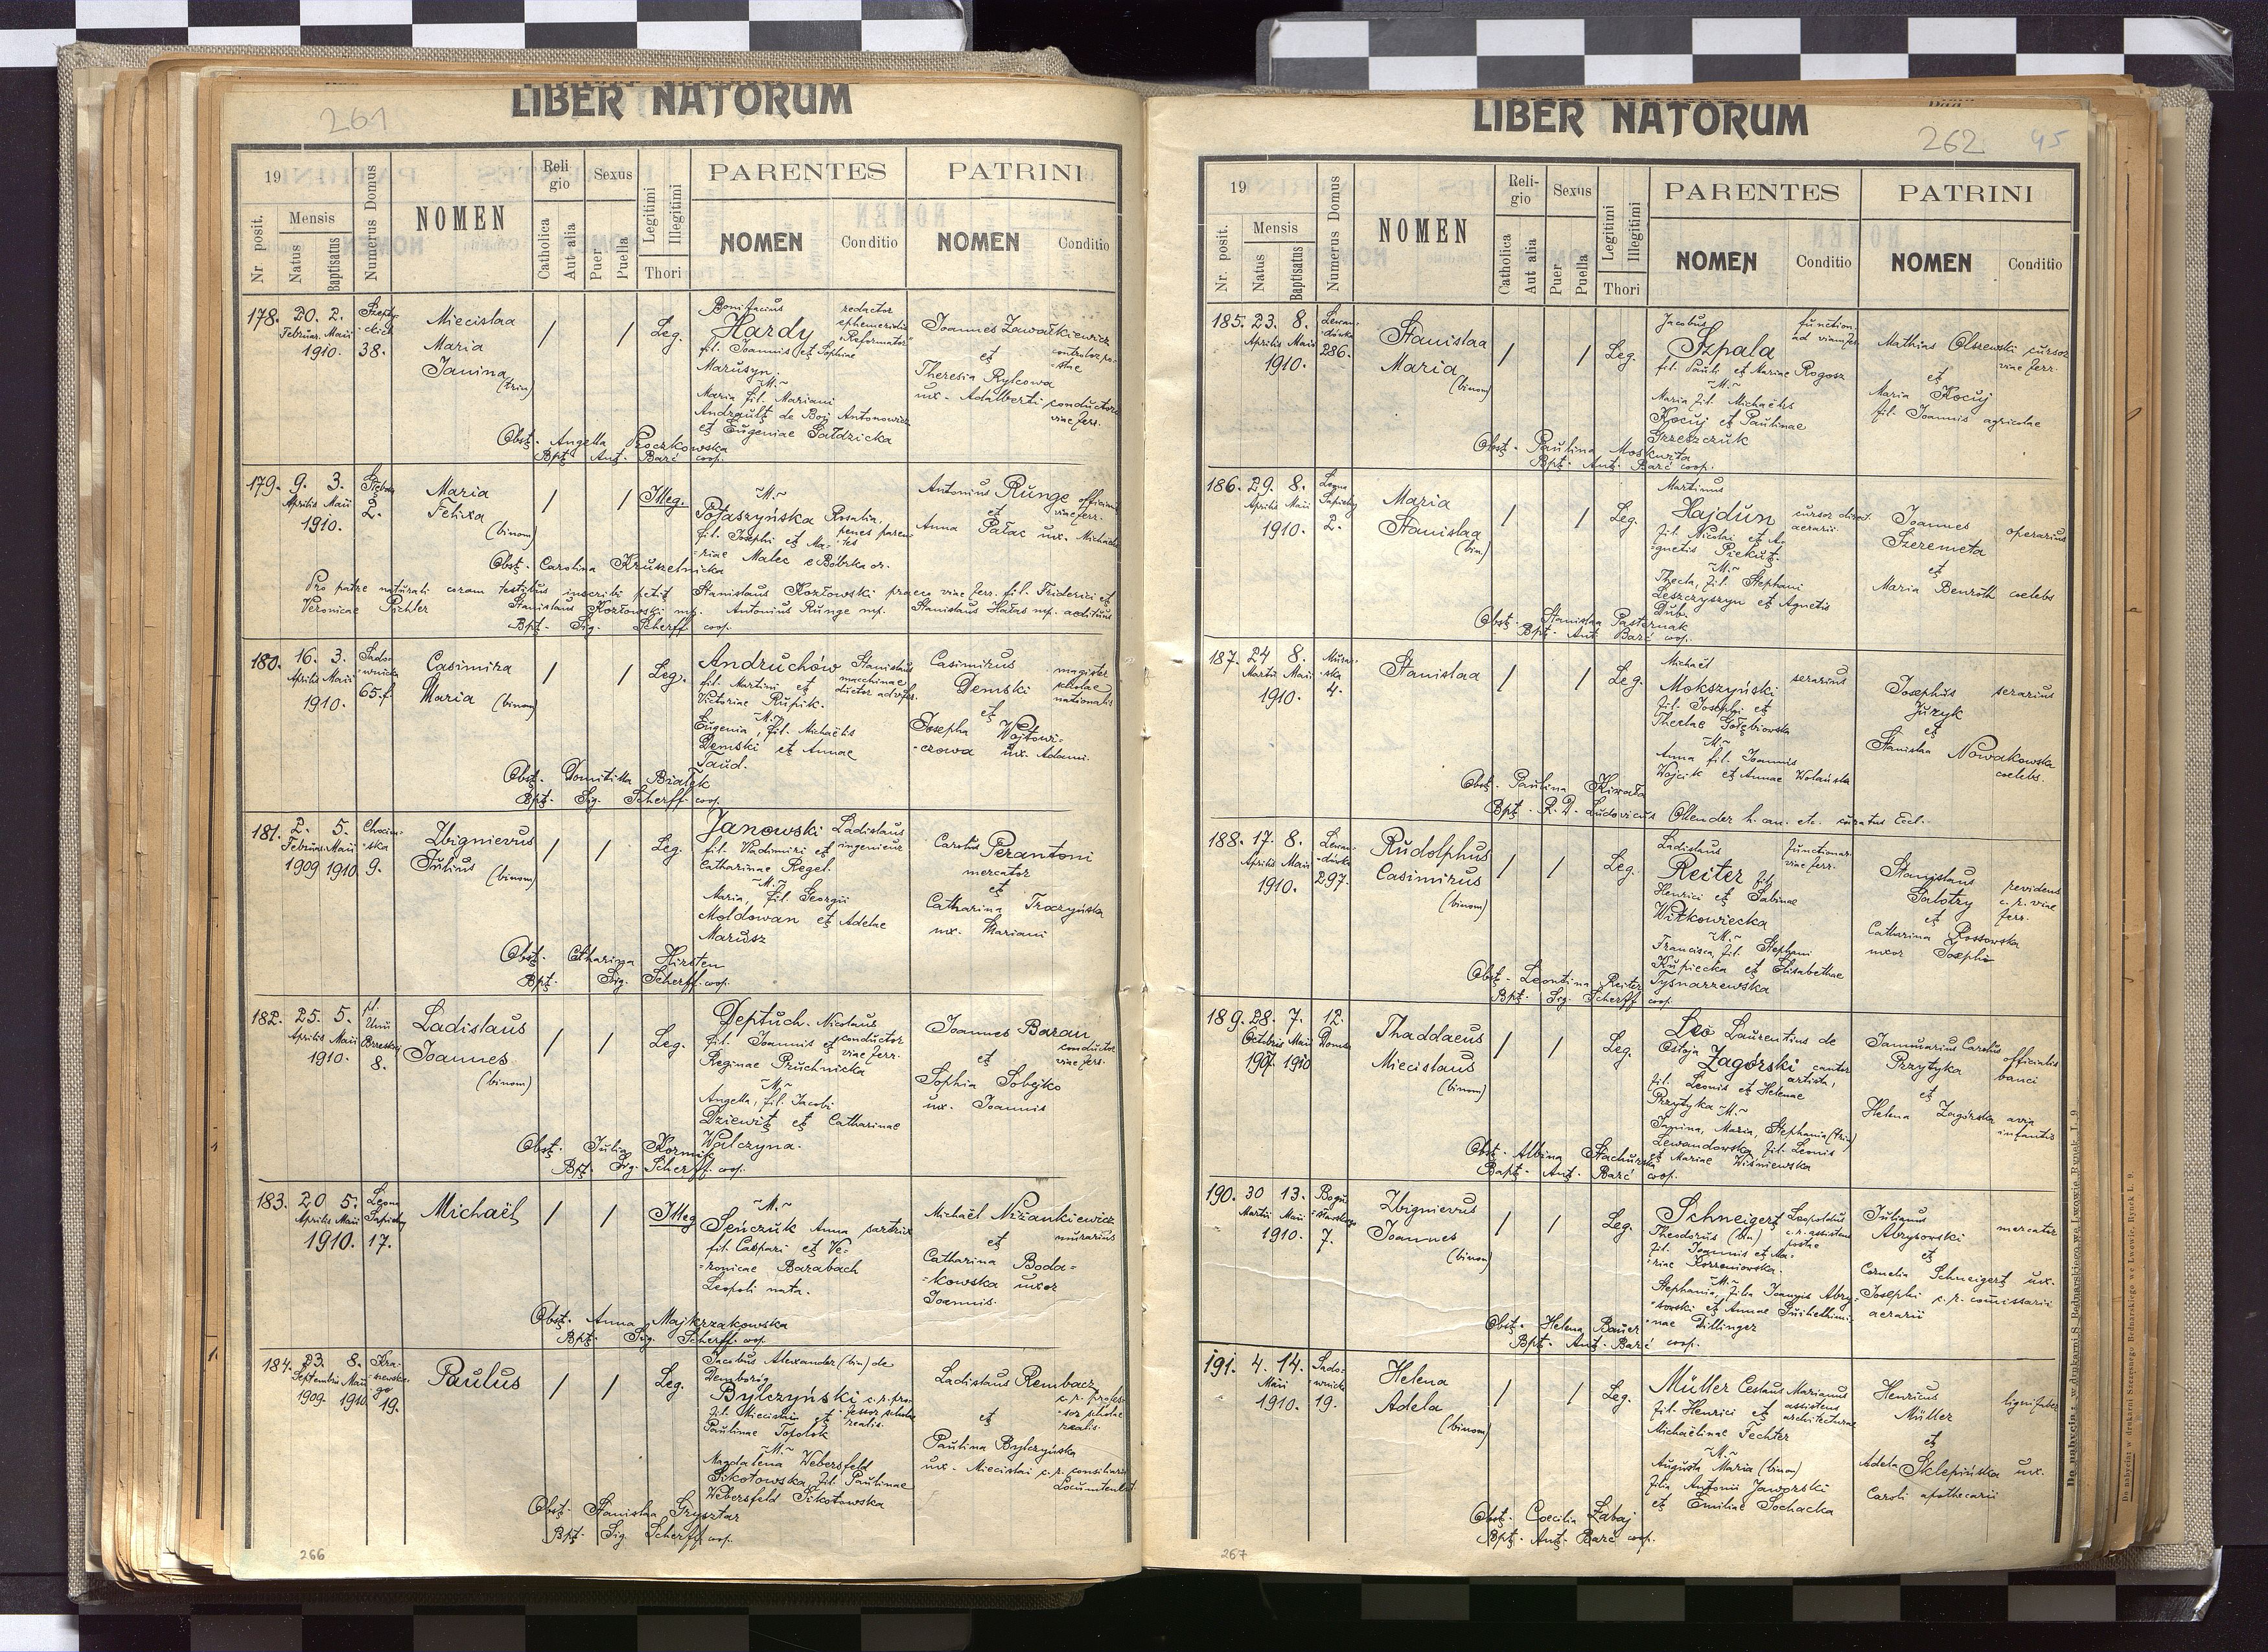 261
LIBER NATORUM
19
Nr. posit.
Mensis
Natus
Baptisatus
Numerus Domus
NOMEN
Religio
Catholica
Aut alia
Sexus
Puer
Puella
Legitimi
Illegitimi
Thori
PARENTES
NOMEN
Conditio
PATRINI
NOMEN
Conditio
178. 20. 2.
Februar. Maii
1910. 38.
Miecislaa
Maria
Janina
(trin)
/ / Leg.
Bonifacius redactor
Hardy ephemeridis
"Reformator"
fil. Joannis et Sophiae
Marusyn.
~M.~
Maria fil. Mariani
Andrault de Boj Antonowicz
et Eugeniae Gałdzicka
Joannes Zawałkiewicz
et
Theresia Rylcowa
ux. Adalberti conductoris
viae ferr.
Obst. Angella Proczkowska
Bpt. Ant. Barć coop.
179. 9. 3.
Aprilis Maii 2.
1910.
Maria
Felixa
(binom)
/ / Illeg.
~M.~
Potaszyńska Rosalia,
fil. Josephi et Ma-
riae Malec e Bóbrka or.
Antonius Runge
et
Anna Pałac ux. Michaelis
Obst. Carolina Kruszelnicka
Pro patre naturali coram testibus inscribi petit Stanislaus Kozłowski praeco viae ferr. fil. Friderici et
Veronicae Pichler Stanislaus Kozłowski mp. Antonius Runge mp. Stanislaus Hałas mp. aedituus
Bpt. Sig. Scherff coop.
180. 16. 3.
Aprilis Maii
1910. 65.f
Sadownicka
Casimira
Maria (binom)
/ / Leg.
Andruchów Stanislaus
fil. Martini et machinae
Victoriae Rupik. ductor
~M.~
Eugenia, fil. Michaëlis
Demski et Annae
Taud.
Casimirus magister
Demski scholae
nationalis
et
Josepha Wojtowi-
-czowa ux. Adami.
Obst. Domitilla Białek
Bpt. Sig. Scherff coop.
181. 2. 5.
Februar. Maii
1909 1910 9.
Chocim-
-ska
Zbignievus
Julius (binom)
/ / Leg.
Janowski Ladislaus
fil. Vladimiri et ingenieur
Catharinae Regel.
~M.~
Maria, fil. Georgii
Moldowan et Adelae
Marusz
Carolus Perantoni
mercator
et
Catharina Traczyńska
ux. Mariani
Obst. Catharina Hirsten
Bpt. Sig. Scherff coop.
182. 25. 5.
Aprilis Maii
1910. 8.
pl.
Unii
Brzeskiej
Ladislaus
Joannes
(binom)
/ / Leg.
Deptuch Nicolaus
fil. Joannis et conductor
Reginae Pruchnicka viae ferr.
~M.~
Angella, fil. Jacobi
Dziewit et Catharinae
Walczyna.
Joannes Baran
conductor
et viae ferr.
Sophia Sobejko
ux. Joannis
Obst. Julia Kormisz
Bpt. Sig. Scherff coop.
183. 20 5.
Aprilis Maii
1910. 17.
Leona
Sapiehy
Michaël
/ / Illeg
~M.~
Senczuk Anna sartrix
fil. Caspari et Ve-
-ronicae Barabach
Leopoli nata.
Michaël Niżankiewicz
et murarius
Catharina Boda-
-kowska uxor
Joannis.
Obst. Anna Majkrzakowska
Bpt. Sig. Scherff coop.
184. 23. 8.
Septembris Maii
1909. 1910 19.
Kra-
-szewskie-
go
Paulus
/ / Leg.
Jacobus Alexander (bin) de
Bylczyński c.r. pro-
fil. Miecislai et fessor scholae
Paulinae Topolok realis.
~M.~
Magdalena Webersfeld
Sikotowska, fil. Paulinae
Webersfeld Sikotowska
Ladislaus Rembacz
c.r. profes-
et sor scholae
realis.
Paulina Bylczyńska
ux. Miecislai c.r. consiliarii
Locumtenent.
Obst. Stanislaa Grysztar
Bpt. Sig. Scherff coop.
266
262 45
LIBER NATORUM
19
Nr. posit.
Mensis
Natus
Baptisatus
Numerus Domus
NOMEN
Religio
Catholica
Aut alia
Sexus
Puer
Puella
Legitimi
Illegitimi
Thori
PARENTES
NOMEN
Conditio
PATRINI
NOMEN
Conditio
185. 23. 8.
Aprilis Maii 286.
1910.
Lewan-
-dówka
Stanislaa
Maria
(binom)
/ / Leg.
Jacobus function.
Szpala ad viam fer.
fil. Pauli et Mariae Rogosz
~M.~
Maria fil. Michaëlis
Kocuj et Paulinae
Grzeszczuk
Mathias Olszewski cursor
viae ferr.
et
Maria Kocuj
fil. Joannis agricolae
Obst. Paulina Moskwita
Bpt. Ant. Barć coop.
186. 29. 8.
Aprilis Maii
1910. 2.
Leona
Sapiehy
Maria
Stanislaa
(bin)
/ / Leg.
Martinus
Hajdun cursor direct.
aerarii
fil. Nicolai et A-
ignetis Piekut.
~M.~
Thecla, fil. Stephani
Leszczyszyn et Agnetis
Dub.
Joannes operarius
Szeremeta
et
Maria Benroth coelebs
Obst. Stanislaa Pasternak
Bpt. Ant. Barć coop.
187. 24 8.
Martii Maii
1910. 4.
Murar-
-ska
Stanislaa
/ / Leg.
Michaël
Mokszyński serarius
fil. Josephi et
Theclae Gołębiowska
~M.~
Anna fil. Joannis
Wojcik et Annae Wolańska
Josephus serarius
Juzyk
et
Stanislaa Nowakowska
coelebs.
Obst. Paulina Kiwała
Bpt. R. D. Ludovicus Ollender h. an. etc. curatus Eccl.
188. 17. 8.
Aprilis Maii
1910. 297.
Lewan-
-dówka
Rudolphus
Casimirus
(binom)
/ / Leg.
Ladislaus functionar.
Reiter fil. viae ferr.
Henrici et Sabinae
Witkowiecka
~M.~
Francisca, fil. Stephani
Kupiecka et Elisabethae
Tysnarzewska
Stanislaus revidens
Salotry c.r. viae
et ferr.
Catharina Rossowska
uxor Josephi
Obst. Leontina Reiter
Bpt. Sig. Scherff coop.
189. 28. 7. 12.
Octobris Maii
1907 1910
Thaddaeus
Miecislaus
(binom)
/ / Leg.
Leo Laurentius de
Ostoja Zagórski cantor
artista,
fil. Leonis et Helenae
Przytyka
~M.~
Janina, Maria, Stephania (trin)
Lewandowska fil. Leonis
et Mariae Wiśniewska
Januarius Carolus officialis
Przytyka banci
et
Helena Zagórska avia
infantis
Obst. Albina Stachurska
Bapt. Ant. Barć coop.
190. 30 13.
Martii Maii
1910. 7.
Bogu-
-sławskiego
Zbignievus
Joannes
(binom)
/ / Leg.
Schneigert Leopoldus
Theodorus (bin) c.r. assistens
fil. Joannis et Ma- postae
-riae Korzeniowska.
~M.~
Stephania, filia Joannis Abry-
-sowski et Annae Guilhelmi-
-nae Dillinger
Julianus mercator
Abrysowski
et
Cornelia Schneigert ux.
Josephi c.r. comissarii
aerarii
Obst. Helena Bauer
Bpt. Ant. Barć coop.
191. 4. 14.
Maii
1910. 19.
Sado-
-wnicka
Helena
Adela
(binom)
/ / Leg.
Müller Ceslaus Marianus
fil. Henrici et assistens
Michaëlinae Fechter architecturae
~M.~
Augusta Maria (binom)
filia Antonii Jaworski
et Emiliae Sochacka
Henricus lignifaber
Müller
et
Adela Sklepińska ux.
Caroli apothecarii
Obst. Coecilia Łabaj
Bpt. Ant. Barć coop.
267
Do nabycia w drukarni S. Bednarskiego we Lwowie, Rynek L. 9.
Do nabycia w drukarni Szczęsnego Bednarskiego we Lwowie. Rynek L. 9.